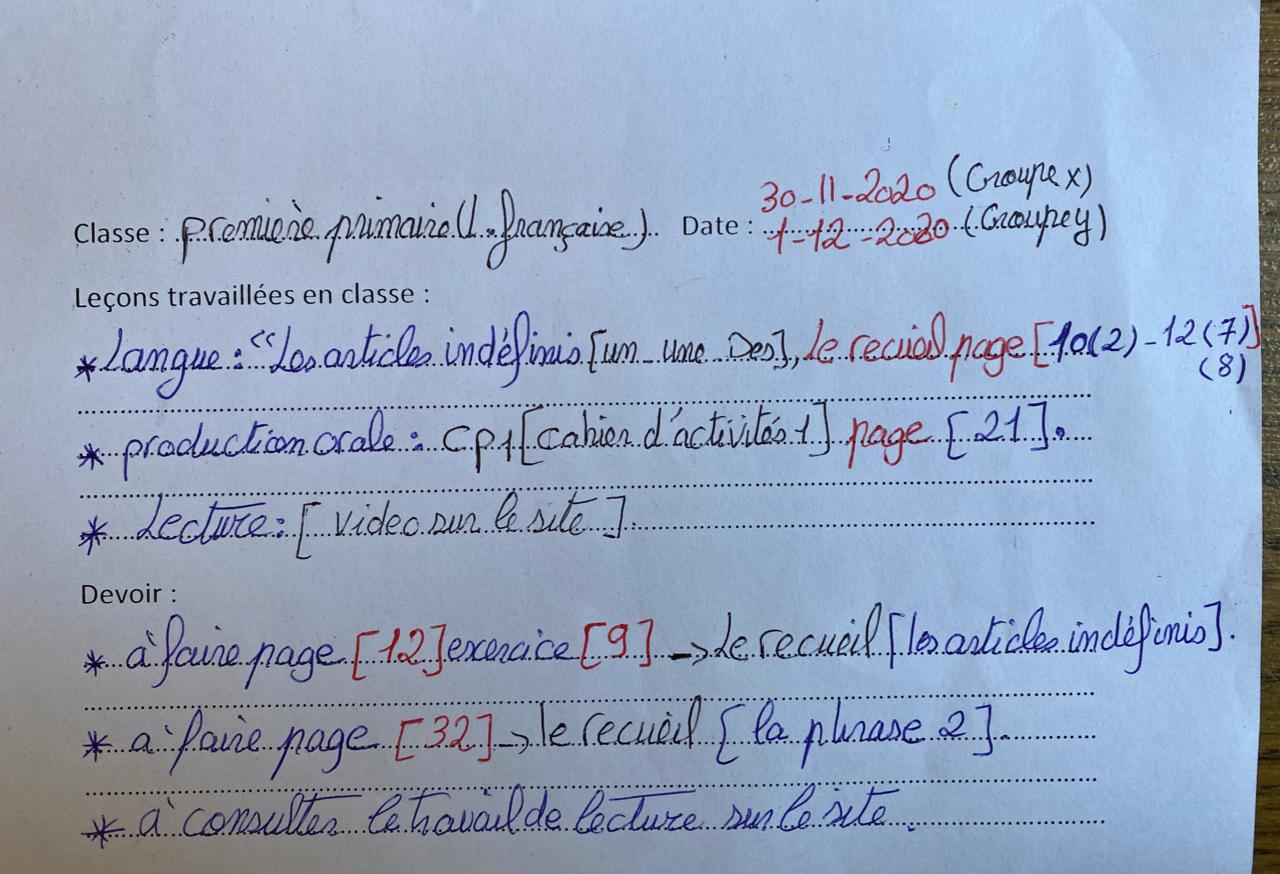 30-11-2020 (Groupe x)
Classe : première primaire (L. française). Date : 1-12-2020 (Groupe y)
Leçons travaillées en classe :
* Langue : "Les articles indéfinis [un_une_Des], Le recueil page [10(2)-12(7)]
(8)
* production orale : CP1 [cahier d'activités 1] page [21].
* Lecture : [video sur le site].
Devoir :
* à faire page [12] exercice [9] → Le recueil [les articles indéfinis].
* à faire page [32] → le recueil [la phrase 2].
* à consulter le travail de lecture sur le site.